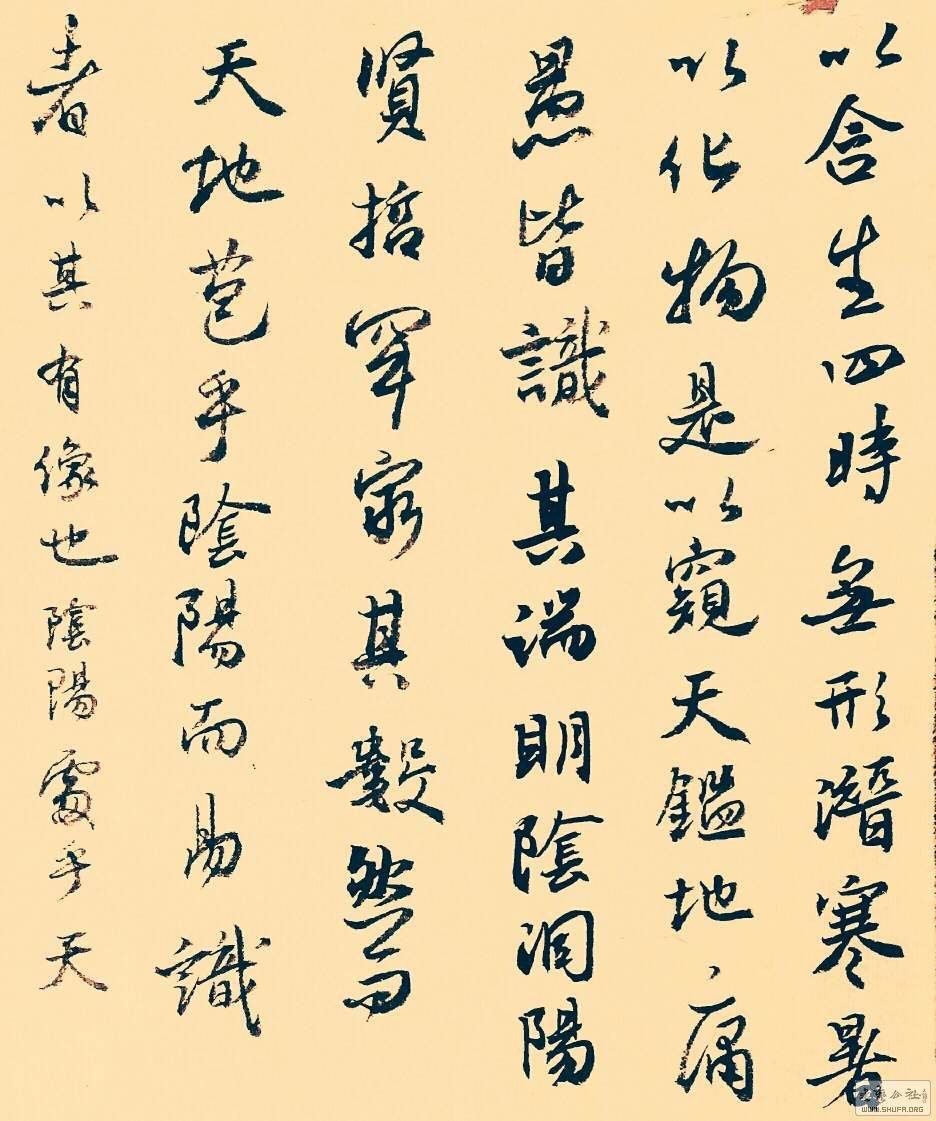 以含生四時無形潛寒暑
以化物是以窺天鑑地庸
愚皆識其端明陰洞陽
賢哲罕窮其數然而
天地苞乎陰陽而易識
者以其有像也陰陽處乎天
WWW.SHUFA.ORG